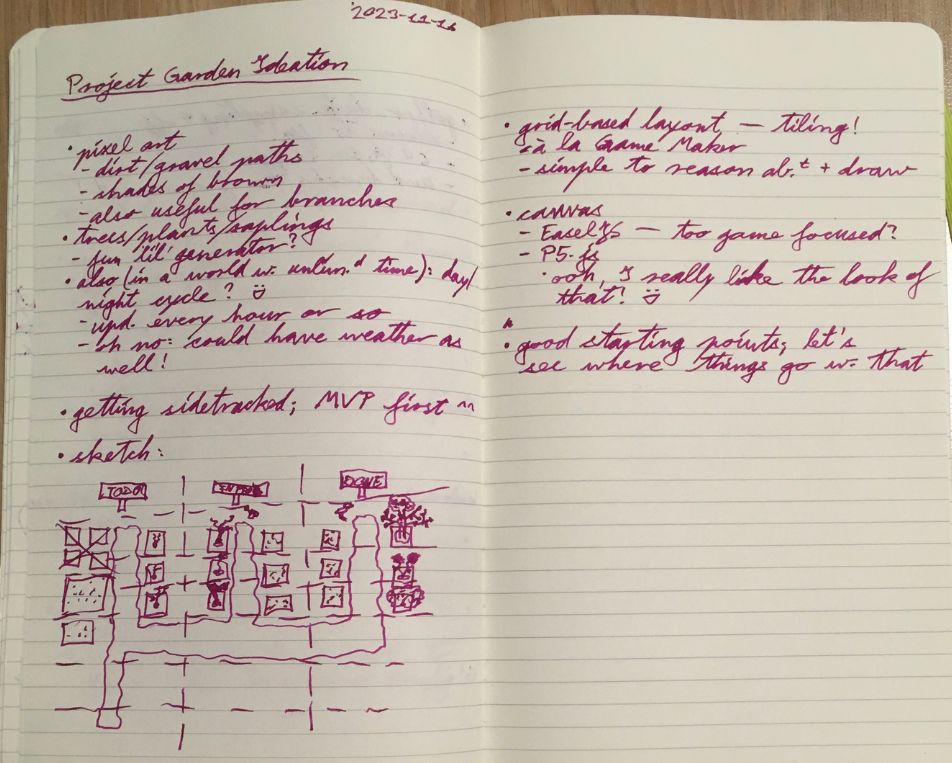 2023-11-16
Project Garden Ideation
• pixel art
- dirt/gravel paths
- shades of brown
- also useful for branches
• trees/plants/saplings
- fun 'lil' generator?
• also (in a world w. unlim.d time): day/
night cycle? :)
- upd. every hour or so
- oh no: could have weather as
well!
• getting sidetracked; MVP first ^^
• sketch:
TODO
DONE
• grid-based layout, — tiling!
- à la Game Maker
- simple to reason ab.t + draw
• canvas
- EaselJS — too game focused?
- P5.js
• ooh, I really like the look of
that! :)
• good starting points; let's
see where things go w. that